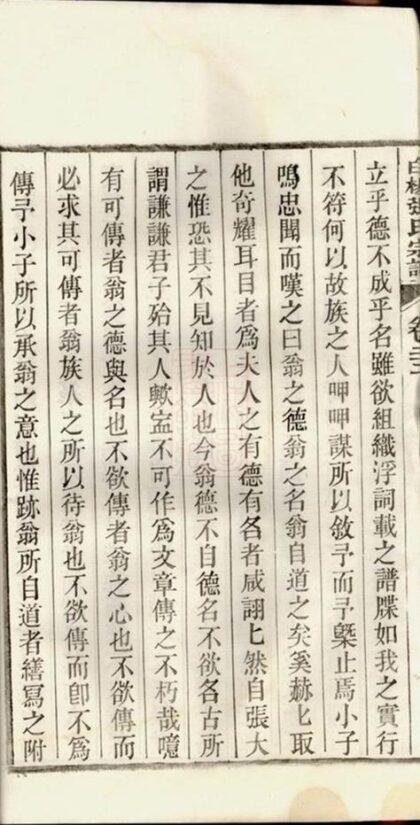 立乎德不成乎名雖欲組織浮詞載之譜牒如我之實行
不符何以故族之人呷呷謀所以敘予而予槩止焉小子
鳴忠聞而嘆之曰翁之德翁之名翁自道之矣奚赫匕取
他奇耀耳目者爲夫人之有德有名者咸詡匕然自張大
之惟恐其不見知於人也今翁德不自德名不欲名古所
謂謙謙君子殆其人歟盍不可作爲文章傳之不朽哉噫
有可傳者翁之德與名也不欲傳者翁之心也不欲傳而
必求其可傳者翁族人之所以待翁也不欲傳而卽不爲
傳予小子所以承翁之意也惟跡翁所自道者繕寫之附